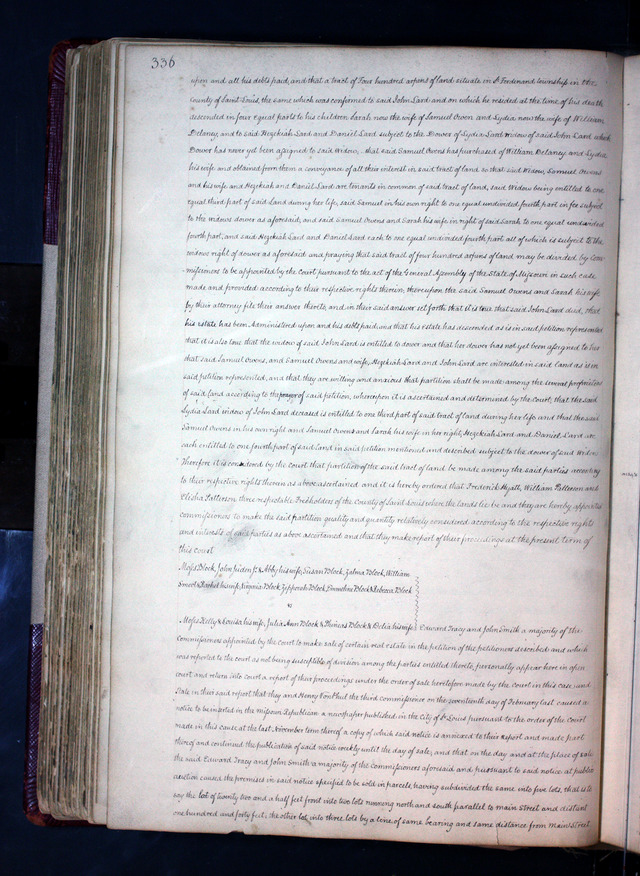 336
upon and all his debts paid, and that a tract of Four hundred arpens of land situate in St Ferdinand township in the
County of Saint Louis, the same which was confirmed to said John Lard and on which he resided at the time of his death
descended in four equal parts to his children Sarah now the wife of Samuel Owen and Lydia now the wife of William
Delaney, and to said Hezekiah Lard and Daniel Lard subject to the Dower of Lydia Lard widow of said John Lard which
Dower has never yet been assigned to said widow, that said Samuel Owens has purchased of William Delaney and Lydia
his wife and obtained from them a conveyance of all their interest in said tract of land, so that said Widow, Samuel Owens
and his wife and Hezekiah and Daniel Lard are tenants in common of said tract of land, said Widow being entitled to one
equal third part of said Land during her life, said Samuel in his own right to one equal undivided fourth part in fee subject
to the widows dower as aforesaid, and said Samuel Owens and Sarah his wife in right of said Sarah to one equal undivided
fourth part, and said Hezekiah Lard and Daniel Lard each to one equal undivided fourth part all of which is subject to the
widows right of dower as aforesaid and praying that said tract of four hundred arpens of land may be divided by Com
-missioners to be appointed by the Court pursuant to the act of the General Assembly of the State of Missouri in such case
made and provided according to their respective rights therein, thereupon the said Samuel Owens and Sarah his wife
by their attorney file their answer thereto, and in their said answer set forth that it is true that said John Lard died, that
his estate has been Administered upon and his debts paid, and that his estate has descended as is in said petition represented
that it is also true that the widow of said John Lard is entitled to dower and that her dower has not yet been assigned to her
that said Samuel Owens, and Samuel Owens and wife, Hezekiah Lard and John Lard are interested in said land as is in
said petition represented, and that they are willing and anxious that partition shall be made among the several proprietors
of said land according to the prayer of said petition, whereupon it is ascertained and determined by the Court, that the said
Lydia Lard widow of John Lard deceased is entitled to one third part of said tract of land during her life and that the said
Samuel Owens in his own right and Samuel Owens and Sarah his wife in her right, Hezekiah Lard and Daniel Lard are
each entitled to one fourth part of said land in said petition mentioned and described subject to the dower of said Widow
Therefore it is considered by the court that partition of the said tract of land be made among the said parties according
to their respective rights therein as above ascertained and it is hereby ordered that Frederick Hyatt, William Patterson and
Elisha Patterson three respectable Freeholders of the County of Saint Louis where the lands lie be and they are hereby appointed
commissioners to make the said partition quality and quantity relatively considered according to the respective rights
and interests of said parties as above ascertained and that they make report of their proceedings at the present term of
this court
Moses Block, John Jiden Jr & Abby his wife, Susan Block, Zalma Block, William
Smoot & Rachel his wife, Virginia Block, Zipporah Block, Emmeline Block & Rebecca Block
vs
Moses Kelly & Louisa his wife, Julia Ann Block & Phineas Block & Delia his wife Edward Tracy and John Smith a majority of the
commissioners appointed by the court to make sale of certain real estate in the petition of the petitioners described and which
was reported to the court as not being susceptible of division among the parties entitled thereto, personally appear here in open
court and return into court a report of their proceedings under the order of sale heretofore made by the court in this case, and
state in their said report that they and Henry Von Phul the third commissioner on the seventeenth day of February last caused a
notice to be inserted in the Missouri Republican a newspaper published in the City of St Louis pursuant to the order of the Court
made in this cause at the last November term thereof a copy of which said notice is annexed to their report and made part
thereof and continued the publication of said notice weekly until the day of sale, and that on the day and at the place of sale
the said Edward Tracy and John Smith a majority of the commissioners aforesaid and pursuant to said notice at public
auction caused the premises in said notice specified to be sold in parcels, having subdivided the same into five lots, that is to
say the lot of twenty two and a half feet front into two lots running north and south parallel to main street and distant
one hundred and forty feet, the other lot into three lots by a line of same bearing and same distance from Main Street